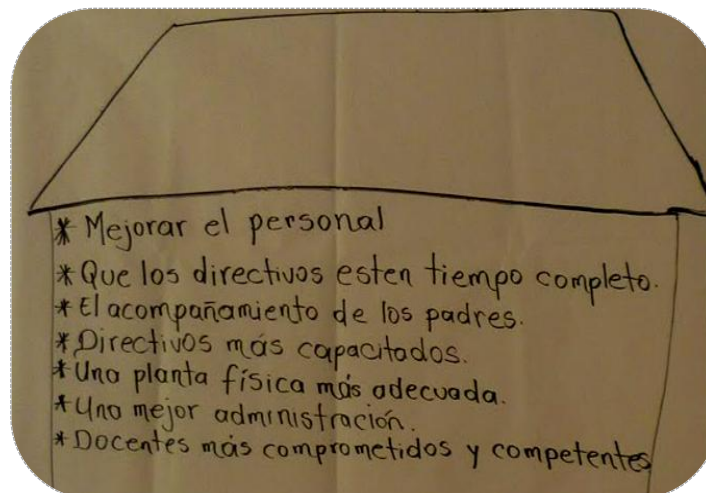 * Mejorar el personal
* Que los directivos esten tiempo completo.
* El acompañamiento de los padres.
* Directivos más capacitados.
* Una planta física más adecuada.
* Una mejor administración.
* Docentes más comprometidos y competentes